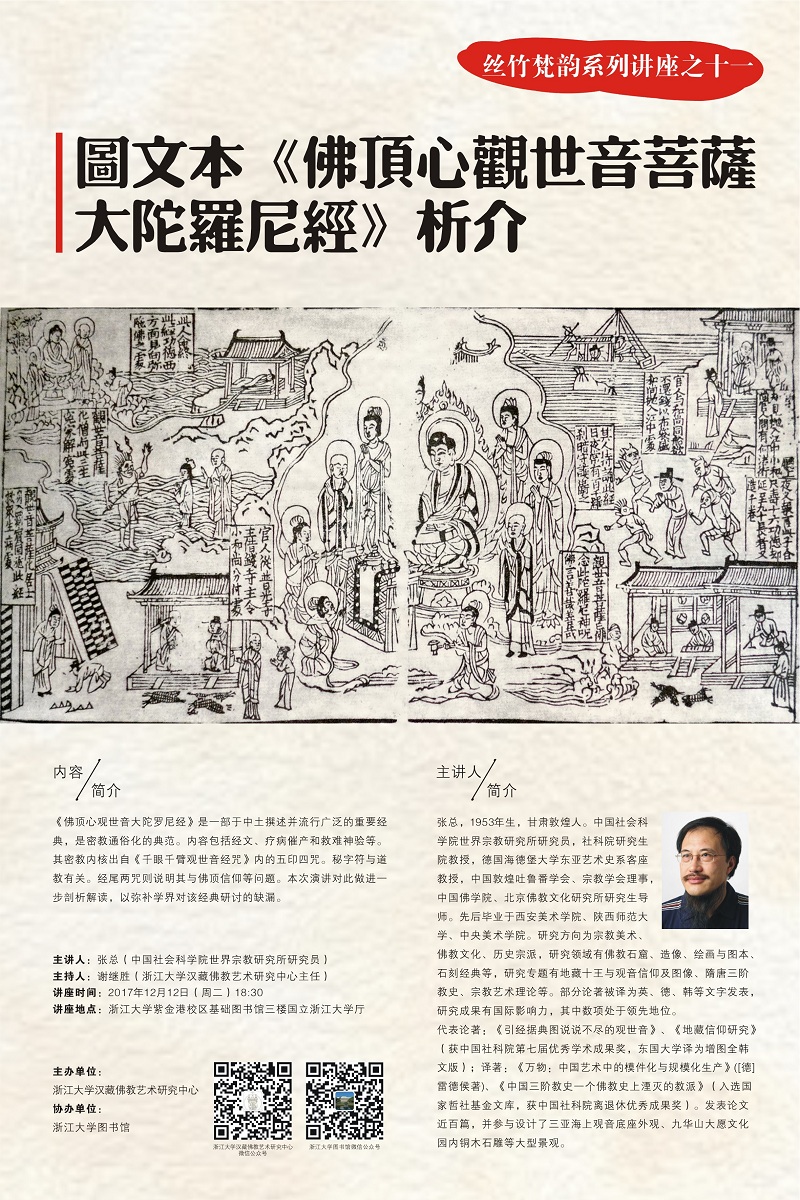 丝竹梵韵系列讲座之十一
圖文本《佛頂心觀世音菩薩
大陀羅尼經》析介
此人命終
此經功德西
方面見向弥
陁佛之處
觀世音菩薩
化僧与此女
官人從普光寺
主借錢寺主令
小和尚人分付處
觀世音菩薩
内容
简介
《佛顶心观世音大陀罗尼经》是一部于中土撰述并流行广泛的重要经
典，是密教通俗化的典范。内容包括经文、疗病催产和救难神验等。
其密教内核出自《千眼千臂观世音经咒》内的五印四咒。秘字符与道
教有关。经尾两咒则说明其与佛顶信仰等问题。本次演讲对此做进一
步剖析解读，以弥补学界对该经典研讨的缺漏。
主讲人：张总（中国社会科学院世界宗教研究所研究员）
主持人：谢继胜（浙江大学汉藏佛教艺术研究中心主任）
讲座时间：2017年12月12日（周二）18:30
讲座地点：浙江大学紫金港校区基础图书馆三楼国立浙江大学厅
主办单位：
浙江大学汉藏佛教艺术研究中心
协办单位：
浙江大学图书馆
浙江大学汉藏佛教艺术研究中心
微信公众号
浙江大学图书馆微信公众号
主讲人
简介
张总，1953年生，甘肃敦煌人。中国社会科
学院世界宗教研究所研究员，社科院研究生
院教授，德国海德堡大学东亚艺术史系客座
教授，中国敦煌吐鲁番学会、宗教学会理事，
中国佛学院、北京佛教文化研究所研究生导
师。先后毕业于西安美术学院、陕西师范大
学、中央美术学院。研究方向为宗教美术、
佛教文化、历史宗派，研究领域有佛教石窟、造像、绘画与图本、
石刻经典等，研究专题有地藏十王与观音信仰及图像、隋唐三阶
教史、宗教艺术理论等。部分论著被译为英、德、韩等文字发表，
研究成果有国际影响力，其中数项处于领先地位。
代表论著：《引经据典图说说不尽的观世音》、《地藏信仰研究》
（获中国社科院第七届优秀学术成果奖，东国大学译为增图全韩
文版）；译著：《万物：中国艺术中的模件化与规模化生产》([德]
雷德侯著)、《中国三阶教史一个佛教史上湮灭的教派》（入选国
家哲社基金文库，获中国社科院离退休优秀成果奖）。发表论文
近百篇，并参与设计了三亚海上观音底座外观、九华山大愿文化
园内铜木石雕等大型景观。